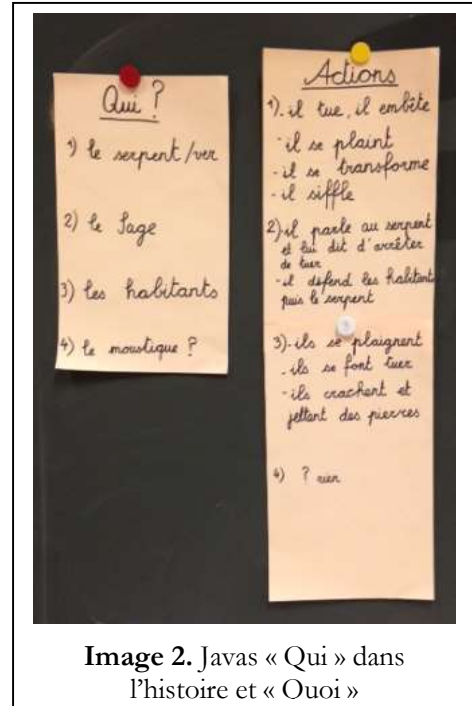 Qui ?
1) le serpent/ver
2) le Sage
3) les habitants
4) le moustique ?
Actions
1)-il tue, il embête
-il se plaint
-il se transforme
-il siffle
2)-il parle au serpent
et lui dit d'arrêter
de tuer
-il défend les habitants
puis le serpent
3)-ils se plaignent
-ils se font tuer
-ils crachent et
jettent des pierres
4) ? rien
Image 2. Javas « Qui » dans
l'histoire et « Quoi »